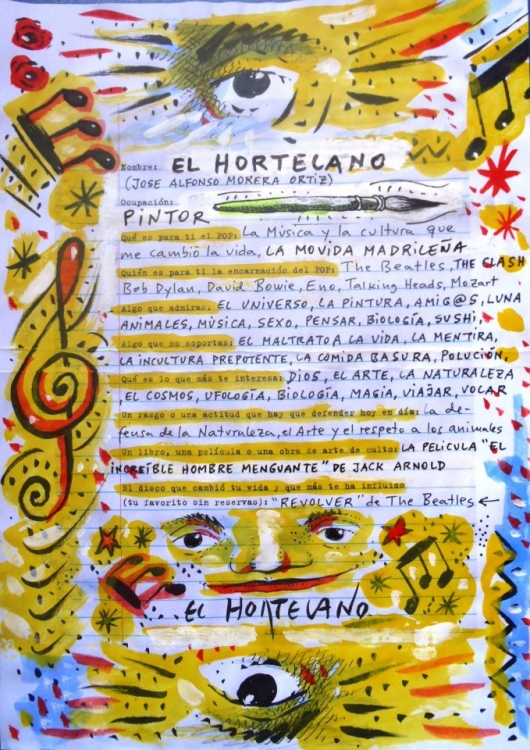 Nombre: EL HORTELANO
(JOSE ALFONSO MORERA ORTIZ)
Ocupación:
PINTOR
Qué es para ti el POP: La Música y la cultura que
me cambió la vida, LA MOVIDA MADRILEÑA
Quién es para ti la encarnación del POP: The Beatles, THE CLASH
Bob Dylan, David Bowie, Eno, Talking Heads, Mozart
Algo que admiras: EL UNIVERSO, LA PINTURA, AMIG@S, LUNA
ANIMALES, MÚSICA, SEXO, PENSAR, BIOLOGÍA, SUSHI,
Algo que no soportas: EL MALTRATO A LA VIDA, LA MENTIRA,
LA INCULTURA PREPOTENTE, LA COMIDA BASURA, POLUCIÓN,
Qué es lo que más te interesa: DIOS, EL ARTE, LA NATURALEZA
, EL COSMOS, UFOLOGÍA, BIOLOGÍA, MAGIA, VIAJAR, VOLAR
Un rasgo o una actitud que hay que defender hoy en día: La de-
fensa de la Naturaleza, el Arte y el respeto a los animales
Un libro, una película o una obra de arte de culto: LA PELICULA "EL
INCREÍBLE HOMBRE MENGUANTE" DE JACK ARNOLD
El disco que cambió tu vida y que más te ha influido
(tu favorito sin reservas): "REVOLVER" de The Beatles ←
EL HORTELANO